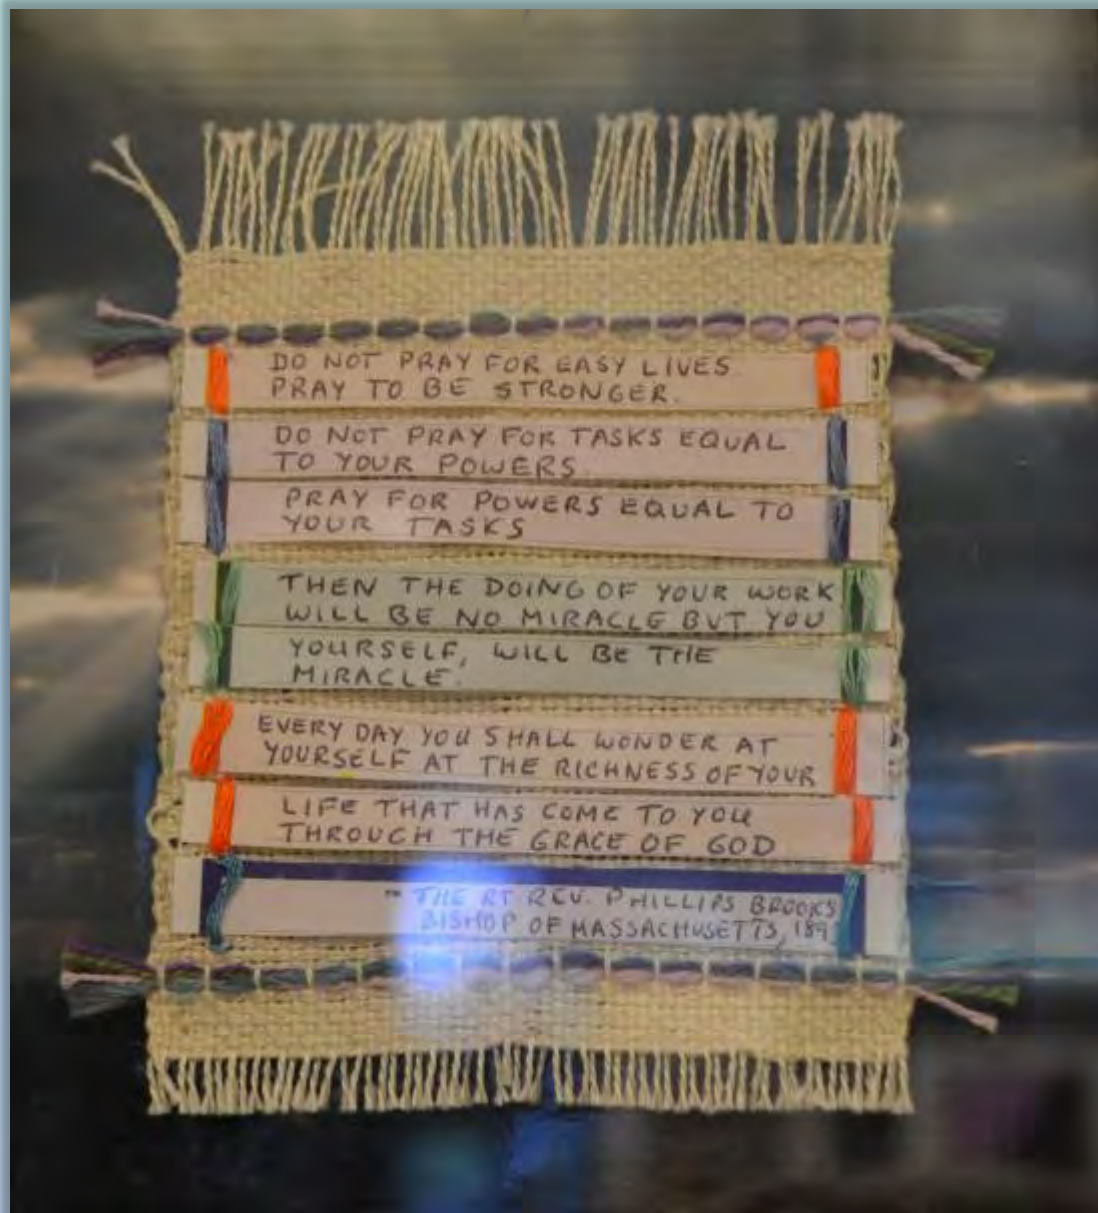 DO NOT PRAY FOR EASY LIVES
PRAY TO BE STRONGER.
DO NOT PRAY FOR TASKS EQUAL
TO YOUR POWERS.
PRAY FOR POWERS EQUAL TO
YOUR TASKS
THEN THE DOING OF YOUR WORK
WILL BE NO MIRACLE BUT YOU
YOURSELF, WILL BE THE
MIRACLE.
EVERY DAY YOU SHALL WONDER AT
YOURSELF AT THE RICHNESS OF YOUR
LIFE THAT HAS COME TO YOU
THROUGH THE GRACE OF GOD
~ THE RT REV. PHILLIPS BROOKS
BISHOP OF MASSACHUSETTS,